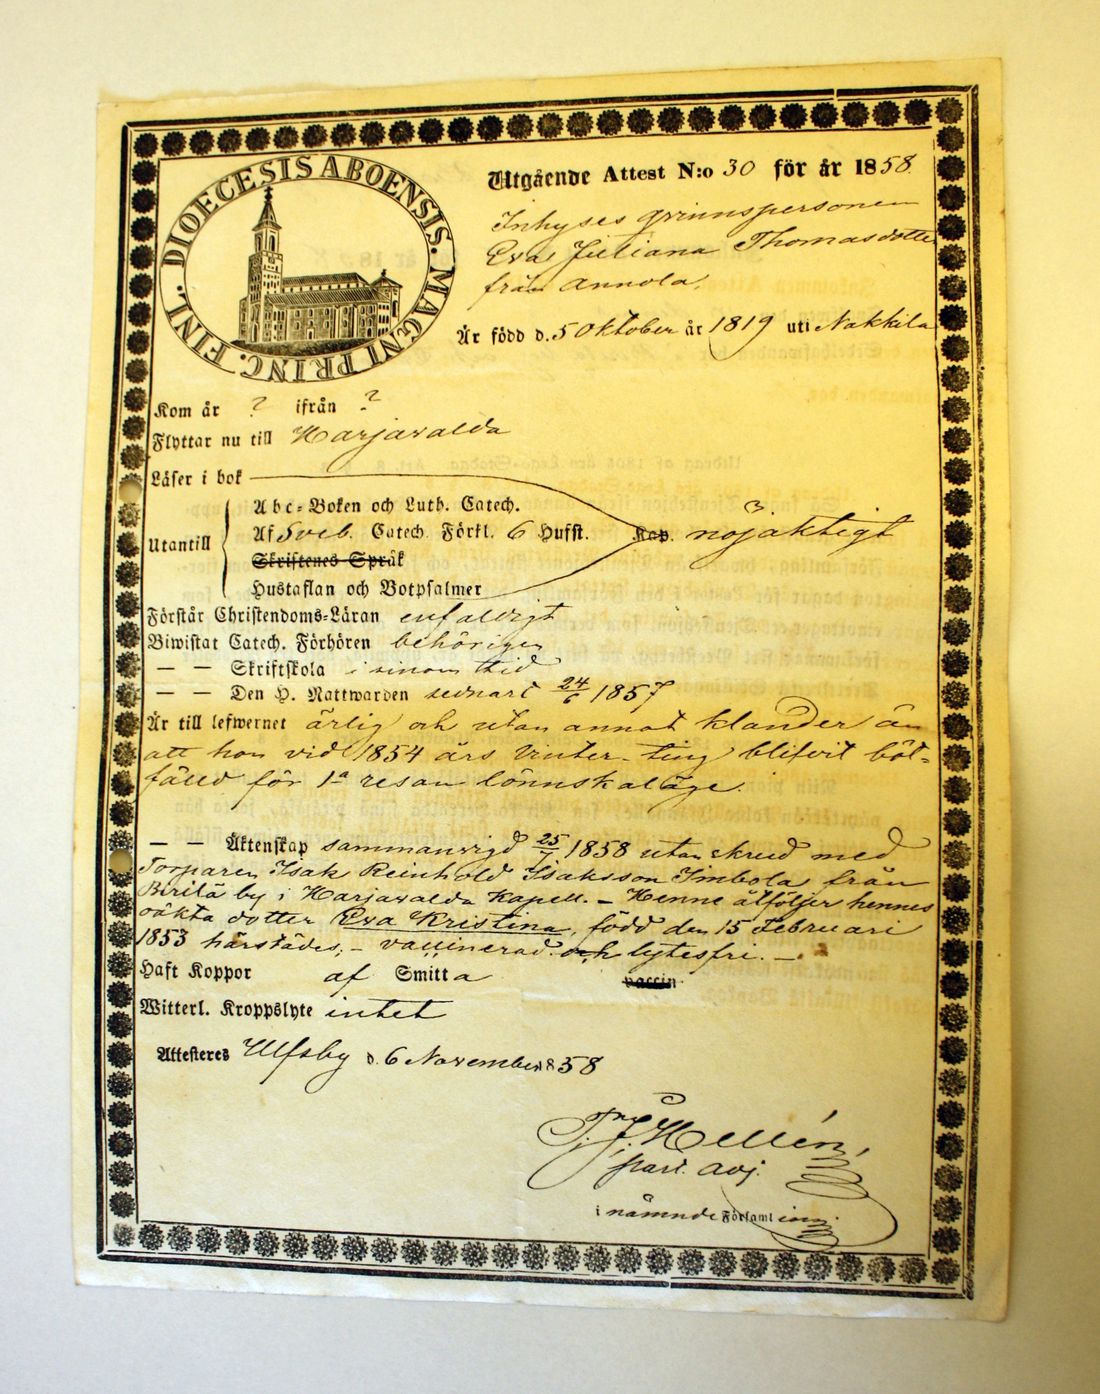 DIOECESIS ABOENSIS. MAGNI PRINC. FINL.
Utgående Attest N:o 30 för år 1858.
Inhyses qvinnspersonen
Eva Juliana Thomasdotter
från Annola.
Är född d. 5 Oktober år 1819 uti Nakkila
Kom år ? ifrån ?
Flyttar nu till Harjavalda
Läser i bok
Utantill
Abc-Boken och Luth. Catech.
Af Sveb. Catech. Förkl. 6 Hufst. Kap. nöjaktigt
Skriftenes Språk
Hustaflan och Botpsalmer
Förstår Christendoms-Läran enfaldigt
Biwistat Catech. Förhören behörigen
— — Skriftskola i sinom tid
— — Den H. Nattwarden sednast 24/6 1857
Är till lefwernet ärlig och utan annat klander än
att hon vid 1854 års Vinter-ting blifvit böt-
fälld för 1a resan lönnskaläge.
— — Äktenskap sammanvigd 25/7 1858 utan skrud med
Torparen Isak Reinhold Isaksson Imbola från
by i Harjavalda Kapell. — Henne åtföljer hennes
oäkta dotter Eva Kristina, född den 15 Februari
1853 härstädes, — vaccinerad och lytesfri. —
Haft Koppor af Smitta vaccin
Witterl. Kroppslyte intet
Attesteres Ulfsby d. 6 November 1858
Hellén,
past. adj.
i nämnde Församling.